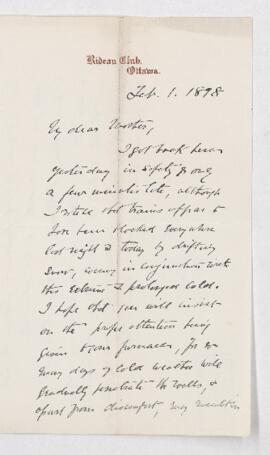 Rideau Club,
Ottawa.
Feb. 1. 1898
My dear
I got back here
yesterday in safety & only
a few minutes late, although
I that trains appear to
have been blocked everywhere
last night & today by drifting
snow, in conjunction with
this & prolonged cold.
I hope that you will insist
on the proper attention being
given to our furnaces, for so
many days of cold weather will
gradually penetrate the walls, &
apart from discomfort, may